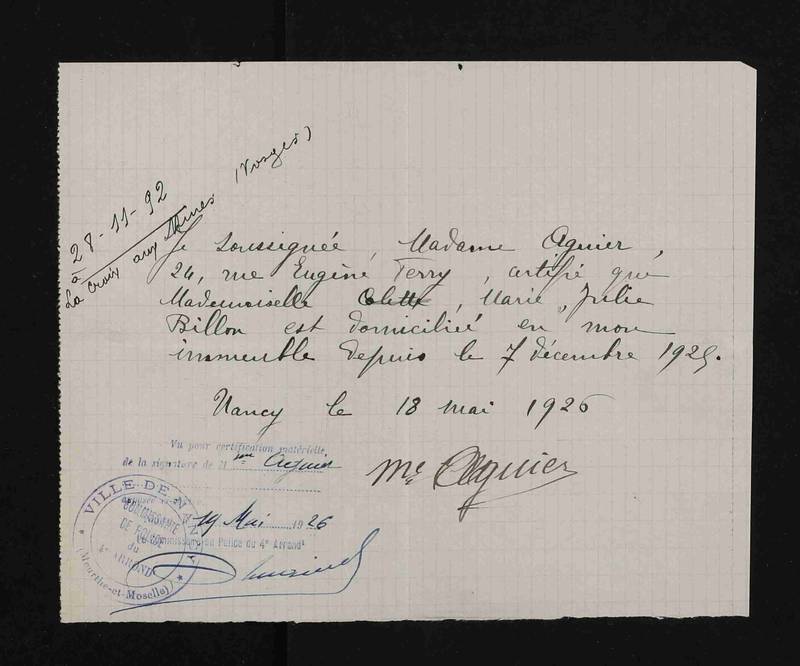 28-11-92
à
La Croix aux Mines (Vosges)
Je soussignée, Madame Aguier,
24, rue Eugène Ferry, certifie que
Mademoiselle Colette, Marie, Julie
Billon est domiciliée en mon
immeuble depuis le 7 décembre 1925.
Nancy le 18 mai 1926
Mme Aguier
Vu pour certification matérielle
de la signature de Mme Aguier
apposée
19 Mai 1926
Commissaire de Police du 4e Arrondt
VILLE DE NANCY
COMMISSARIAT
DE POLICE
du
4e ARROND
(Meurthe-et-Moselle)